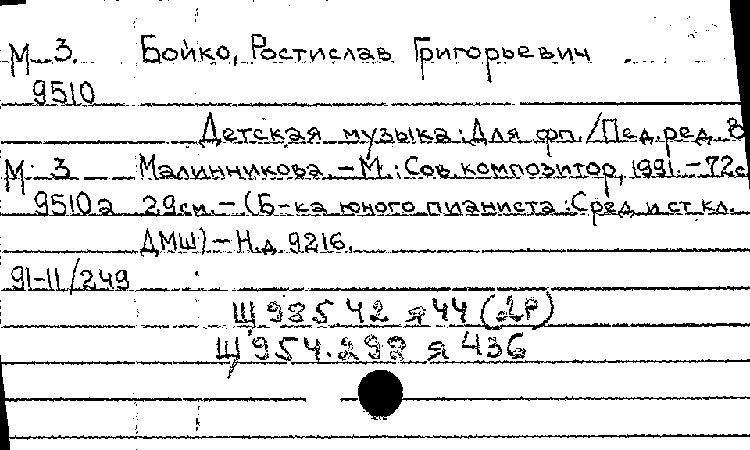 М 3. Бойко, Ростислав Григорьевич
9510
Детская музыка: Для фп. / Пед. ред. В
М 3 Малинникова. – М.: Сов. композитор, 1991. – 72с
9510а 29см. – (Б-ка юного пианиста: Сред. и ст. кл.
ДМШ) – Н.д. 9216.
91-11/249
Щ 985.42 я 44 (2Р)
Щ 954.292 я 436